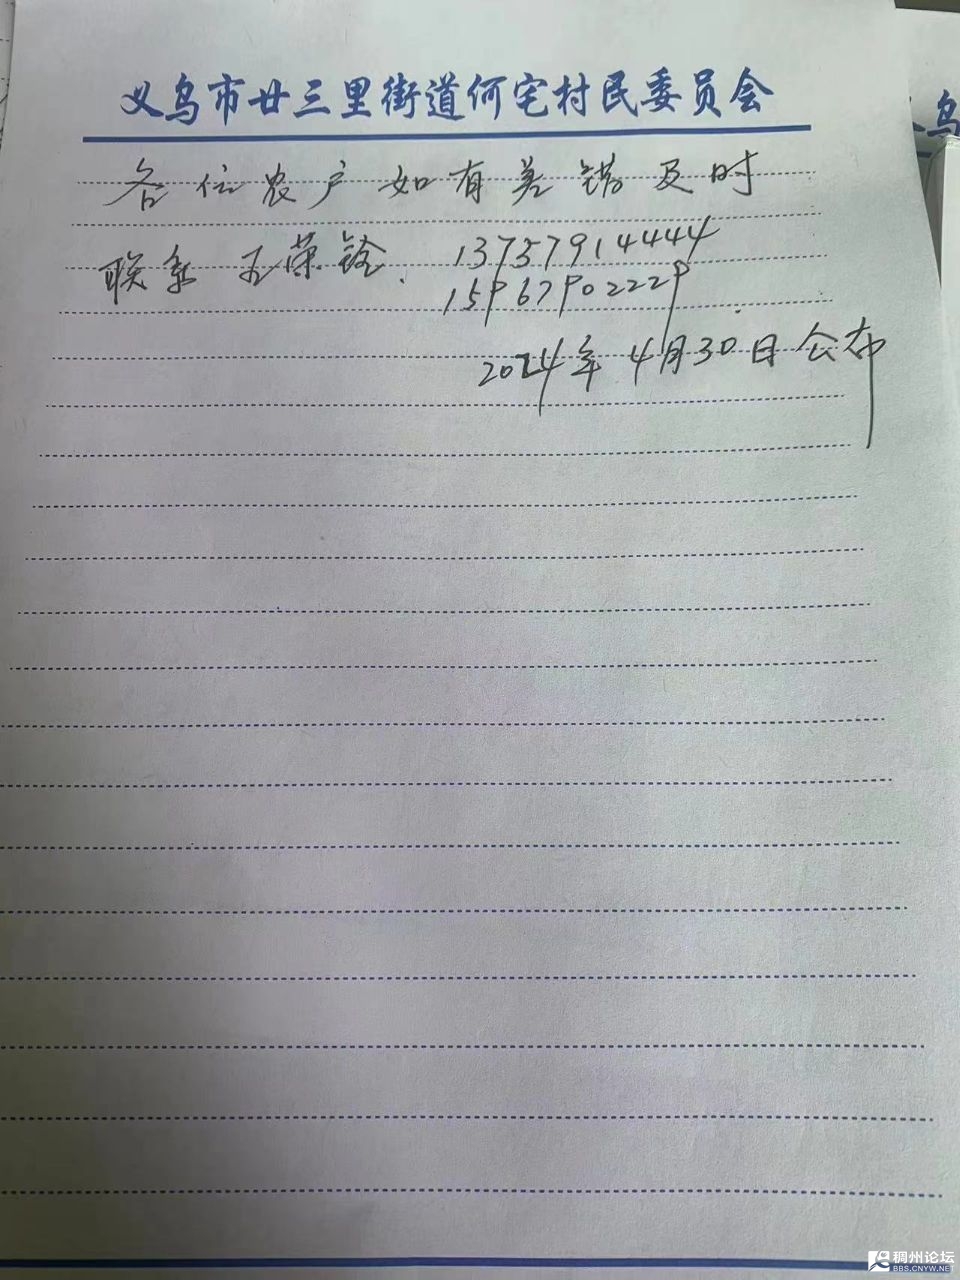 义乌市廿三里街道何宅村民委员会
各位农户如有差错及时
联系 王荣铨. 13757914444
15967902229
2024年4月30日公布
乌
稠州论坛
BBS.CNYW.NET